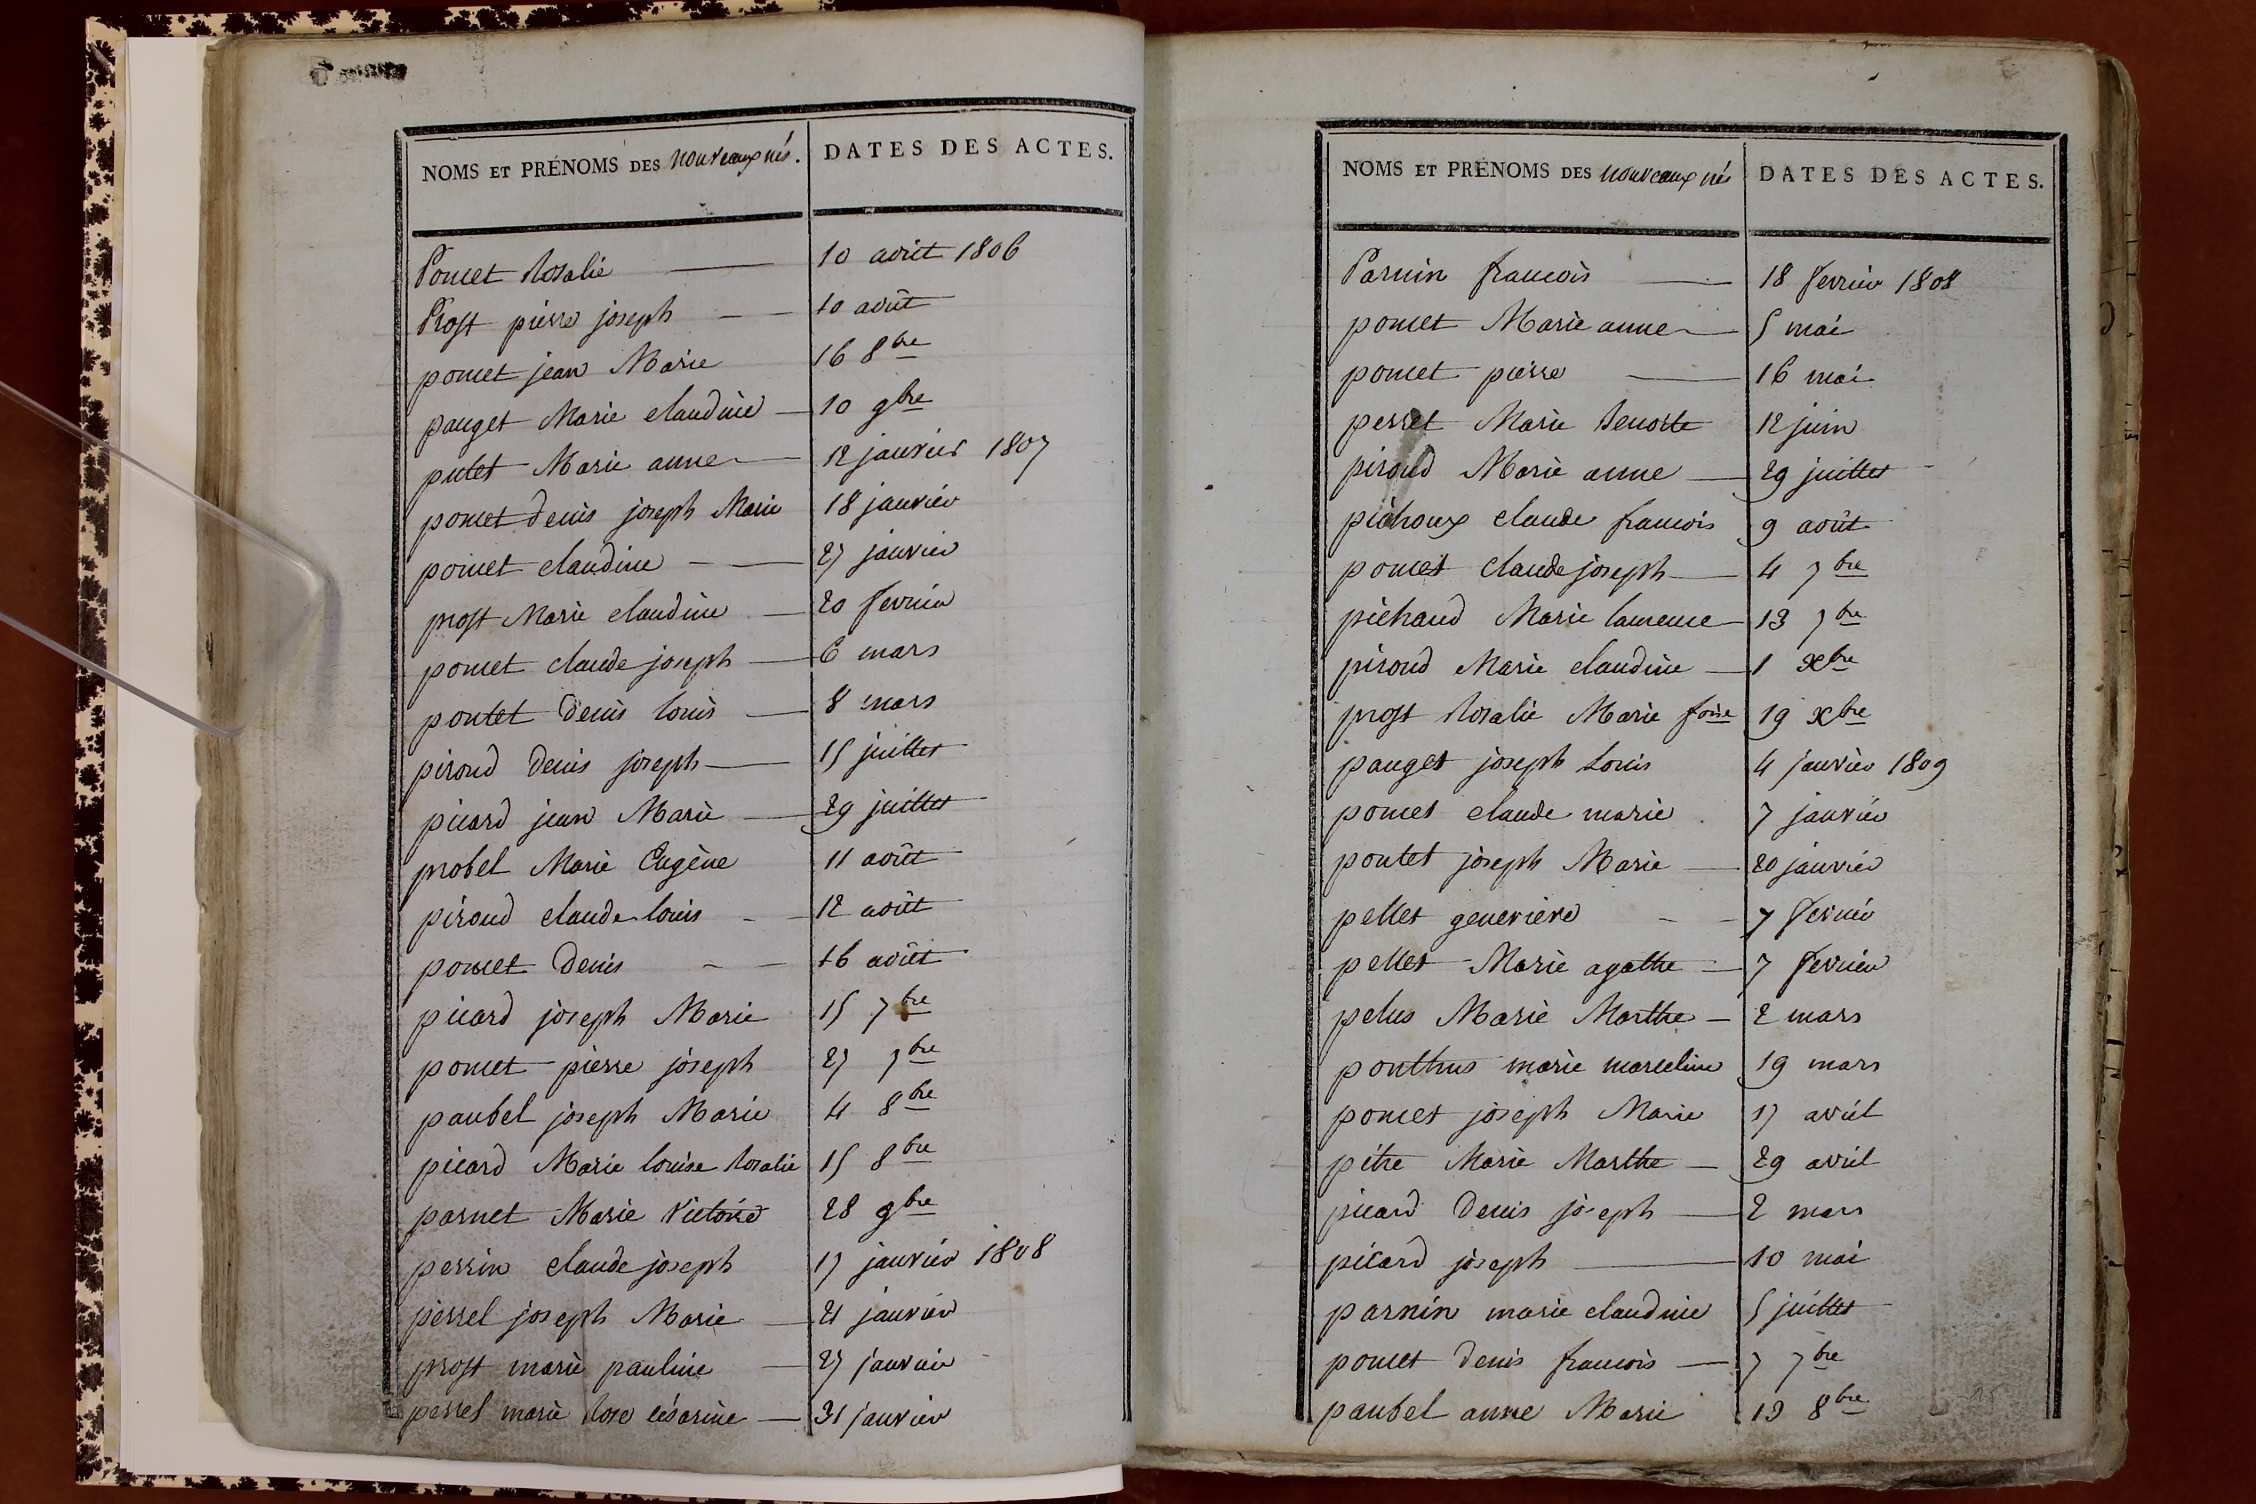 NOMS ET PRÉNOMS DES nouveaux nés. DATES DES ACTES.
Poncet Rosalie 10 août 1806
Prost pierre joseph 10 août
poncet jean Marie 16 8bre
pauget Marie claudine 10 9bre
putet Marie anne 12 janvier 1807
poncet denis joseph Marie 18 janvier
poncet claudine 27 janvier
prost Marie claudine 20 fevrier
poncet claude joseph 6 mars
poutet Denis louis 8 mars
piroud denis joseph 15 juillet
picard jean Marie 29 juillet
probel Marie Eugène 11 août
piroud claude louis 12 août
poncet Denis 16 août
picard joseph Marie 15 7bre
poncet pierre joseph 27 7bre
paubel joseph Marie 4 8bre
picard Marie louise Rosalie 15 8bre
parnet Marie Victoire 28 9bre
perrin claude joseph 17 janvier 1808
perrel joseph Marie 21 janvier
prost marie pauline 27 janvier
perrel marie Rose césarine 31 janvier
NOMS ET PRÉNOMS DES nouveaux nés DATES DES ACTES.
Parnin francois 18 fevrier 1808
poncet Marie anne 5 mai
poncet pierre 16 mai
perret Marie Benoite 12 juin
piroud Marie anne 29 juillet
pichoux claude francois 9 août
poncet claude joseph 4 7bre
pichaud Marie laurence 13 7bre
piroud Marie claudine 1 xbre
prost Rosalie Marie foise 19 xbre
pauget joseph Louis 4 janvier 1809
poncet claude marie 7 janvier
poutet joseph Marie 20 janvier
pellet genevieve 7 fevrier
pellet Marie agathe 7 fevrier
pelus Marie Marthe 2 mars
ponthus marie marceline 19 mars
poncet joseph Marie 17 avril
pitre Marie Marthe 29 avril
picard Denis joseph 2 mars
picard joseph 10 mai
parnin marie claudine 5 juillet
poncet Denis francois 7 7bre
paubel anne Marie 13 8bre